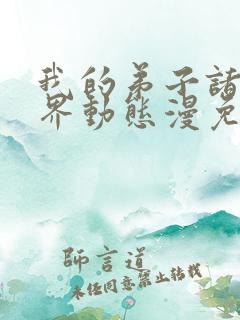 我的弟子諸
界動態漫免
師言道
未经同意禁止转载